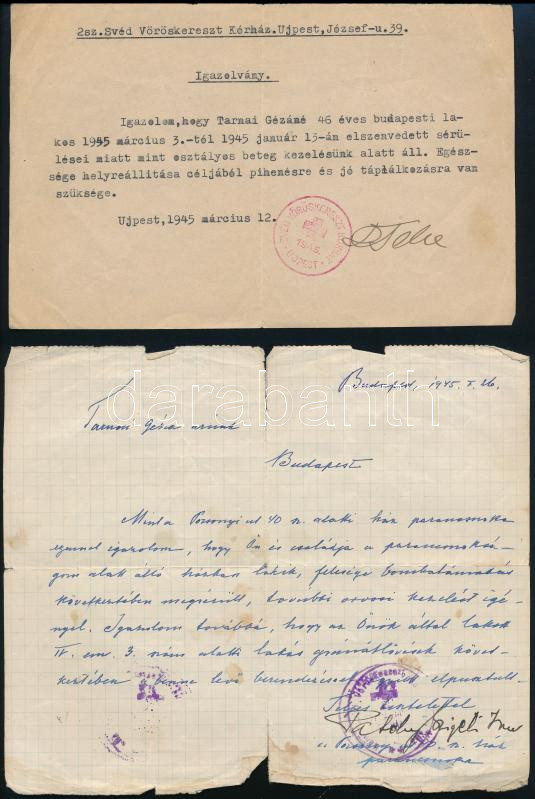 2sz.Svéd Vöröskereszt Kórház.Ujpest,József-u.39.
Igazolvány.
Igazolom,hogy Tarnai Gézáné 46 éves budapesti la-
kos 1945 március 3.-tól 1945 január 13-án elszenvedett sérü-
lései miatt mint osztályos beteg kezelésünk alatt áll. Egész-
sége helyreállitása céljából pihenésre és jó táplálkozásra van
szüksége.
Ujpest,1945 március 12.
1945.
UJPEST
darabanth
Budapest, 1945. I. 26.
Tarnai Géza urnak
Budapest
Mint a Pozsonyi ut 40 n. alatti ház parancsnoka
ezennel igazolom, hogy Ön és családja a parancsnoksá-
gom alatt álló házban lakik, felesége bombatámadás
következtében megsérült, további orvosi kezelést igé-
nyel. Igazolom továbbá, hogy az Önök által lakott
IV. em. 3. szám alatti lakás gránátlövések követ-
keztében a benne levő berendezéssel együtt elpusztult.
Teljes tisztelettel
a Pozsonyi ut 40 n. ház
parancsnoka